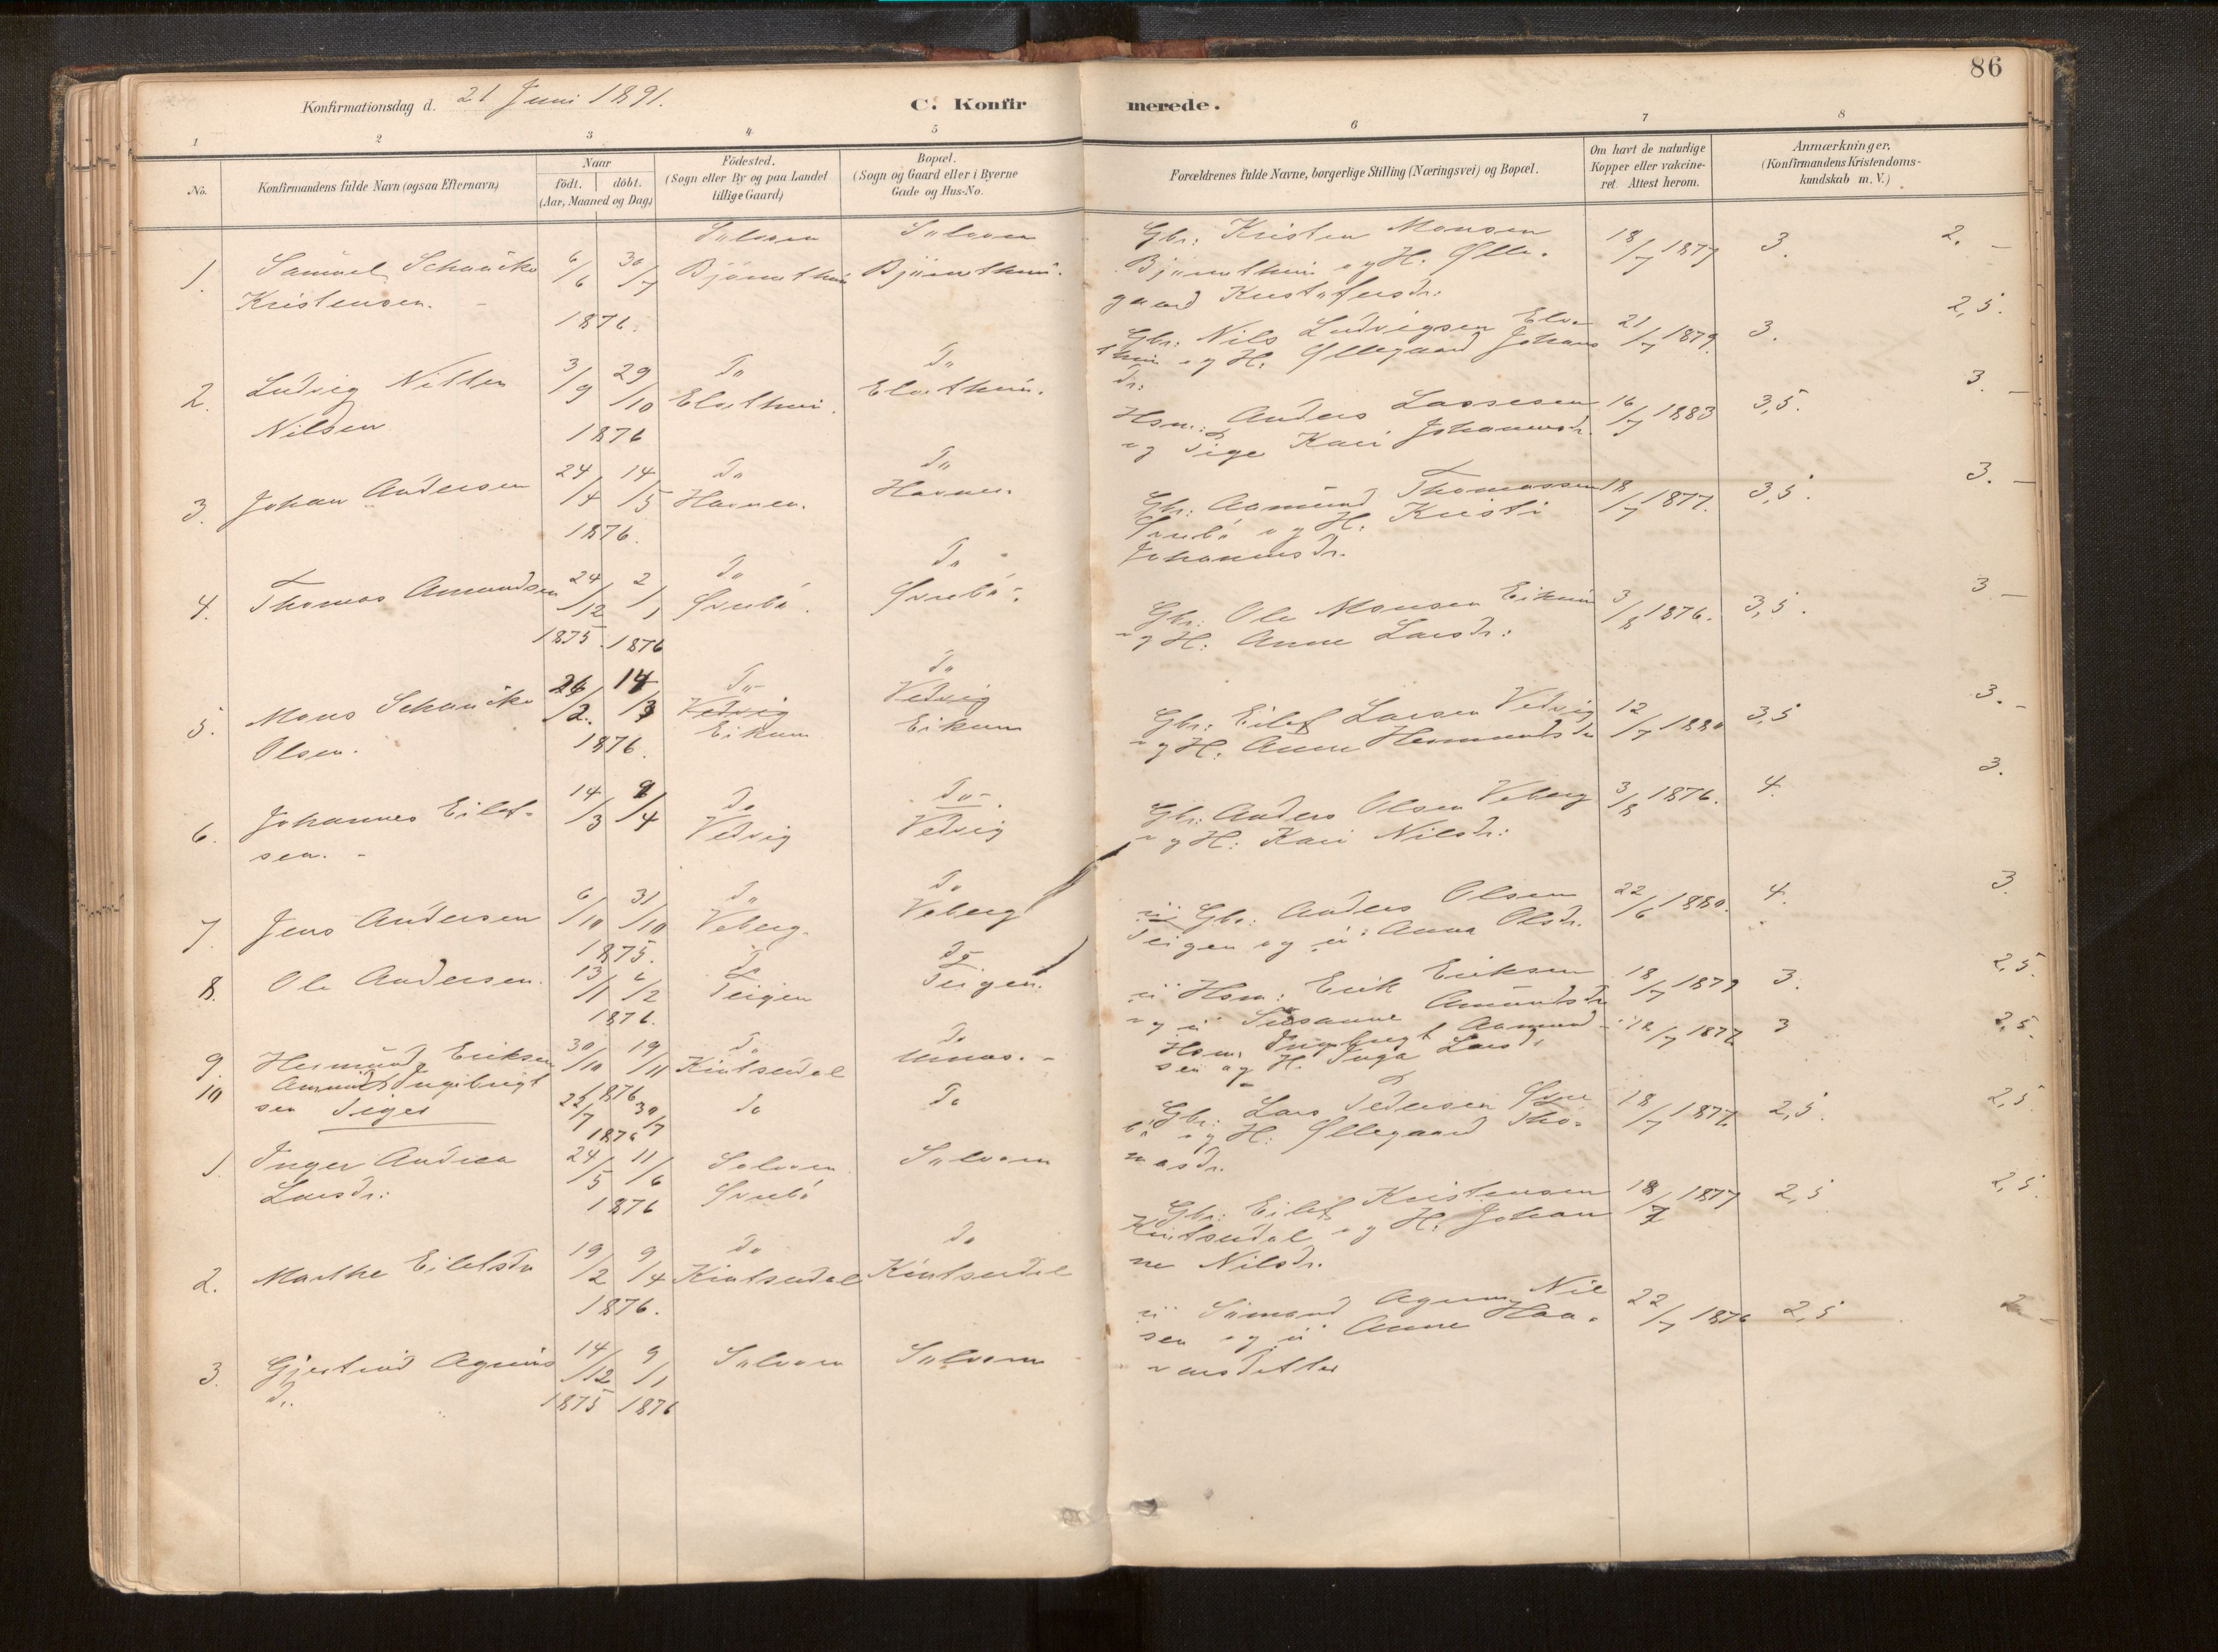 86
Konfirmationsdag d. 21 Juni 1891.
C. Konfirmerede.
1 2 3 4 5 6 7 8
No.
Konfirmandens fulde Navn (ogsaa Efternavn)
Naar
födt. döbt.
(Aar, Maaned og Dag)
Födested.
(Sogn eller By og paa Landet
tillige Gaard)
Bopæl.
(Sogn og Gaard eller i Byerne
Gade og Hus-No.
Forældrenes fulde Navne, borgerlige Stilling (Næringsvei) og Bopæl.
Om havt de naturlige
Kopper eller vakcine-
ret. Attest herom.
Anmærkninger.
(Konfirmandens Kristendoms-
kundskab m. V.)
1. Samuel Schancke
Kristensen.
6/6 30/7
1876.
Solvorn
Solvorn
Gbr: Kristen Monsen
og H. Ølle-
gaard
18/7 1877
3. 2.
2. Ludvig
Nilsen
3/9 29/10
1876
Do
Do
Gbr: Nils Ludvigsen
og H. Øllegaard Johans
dr:
21/7 1879.
3. 2,5.
3. Johan Andersen
24/4 14/5
1876.
Do
Havnen.
Do
Havnen.
Hsm: Anders Lassesen
og Pige Kari Johannesdr.
16/7 1883
3,5. 3.
4. Thomas Amundsen
24/12 2/1
1875. 1876
Do
Do
Gbr: Aamund Thomassen
og H. Kristi
Johannesdr.
18/7 1877.
3,5. 3.
5. Mons Schancke
Olsen.
26/2. 14/3
1876.
Do
Vedvig
Eikum
Do
Vedvig
Eikum
Gbr: Ole Monsen Eikum
og H: Anne Larsdr:
3/8 1876.
3,5. 3
6. Johannes Eilef-
sen.
14/3 9/4
Do
Vedvig
Do
Vedvig
Gbr: Eilef Larsen Vedvig
og H. Anne Hermundsdr
12/7 1880
3,5 3.
7. Jens Andersen
6/10 31/10
1875.
Do
Veberg.
Do
Veberg
Gbr: Anders Olsen Veberg
og H: Kari Nilsdr:
3/8 1876.
4. 3.
8. Ole Andersen.
13/1 6/2
1876.
Do
Teigen
Do
Teigen.
Gbr: Anders Olsen
Teigen og Anna Olsdr.
22/6 1880.
4. 3.
9. Hermund Eriksen
30/10 19/11
1876
Do
Kintsedal
Do
Hsm: Erik Eriksen
og Susanne Amundsdr
18/7 1879
3. 2,5.
10 Amund Ingebrigt
sen
30/7
1876
do
Do
Hsm. Ingebrigt Aamund-
sen og H. Inga Larsdr
18/7 1877
3 2,5.
1. Inger Andrea
Larsdr:
24/5 11/6
1876
Solvorn
Solvorn
Gbr: Lars Pedersen
og H: Øllegaard Tho-
masdr.
18/7 1877.
2,5. 2,5.
2. Marthe Eilefsdr
19/2 9/4
1876.
do
Kintsedal
do
Kintsedal
Gbr: Eilef Kristensen
Kintsedal og H. Johan
ne Nilsdr.
18/7 1877
2,5 2,5.
3. Gjertrud Agrims
dr.
14/12 9/1
1875 1876
Solvorn
Solvorn
Sömand Agrim Nil
sen og Anne Haa-
varsdatter
22/7 1876
2,5 2